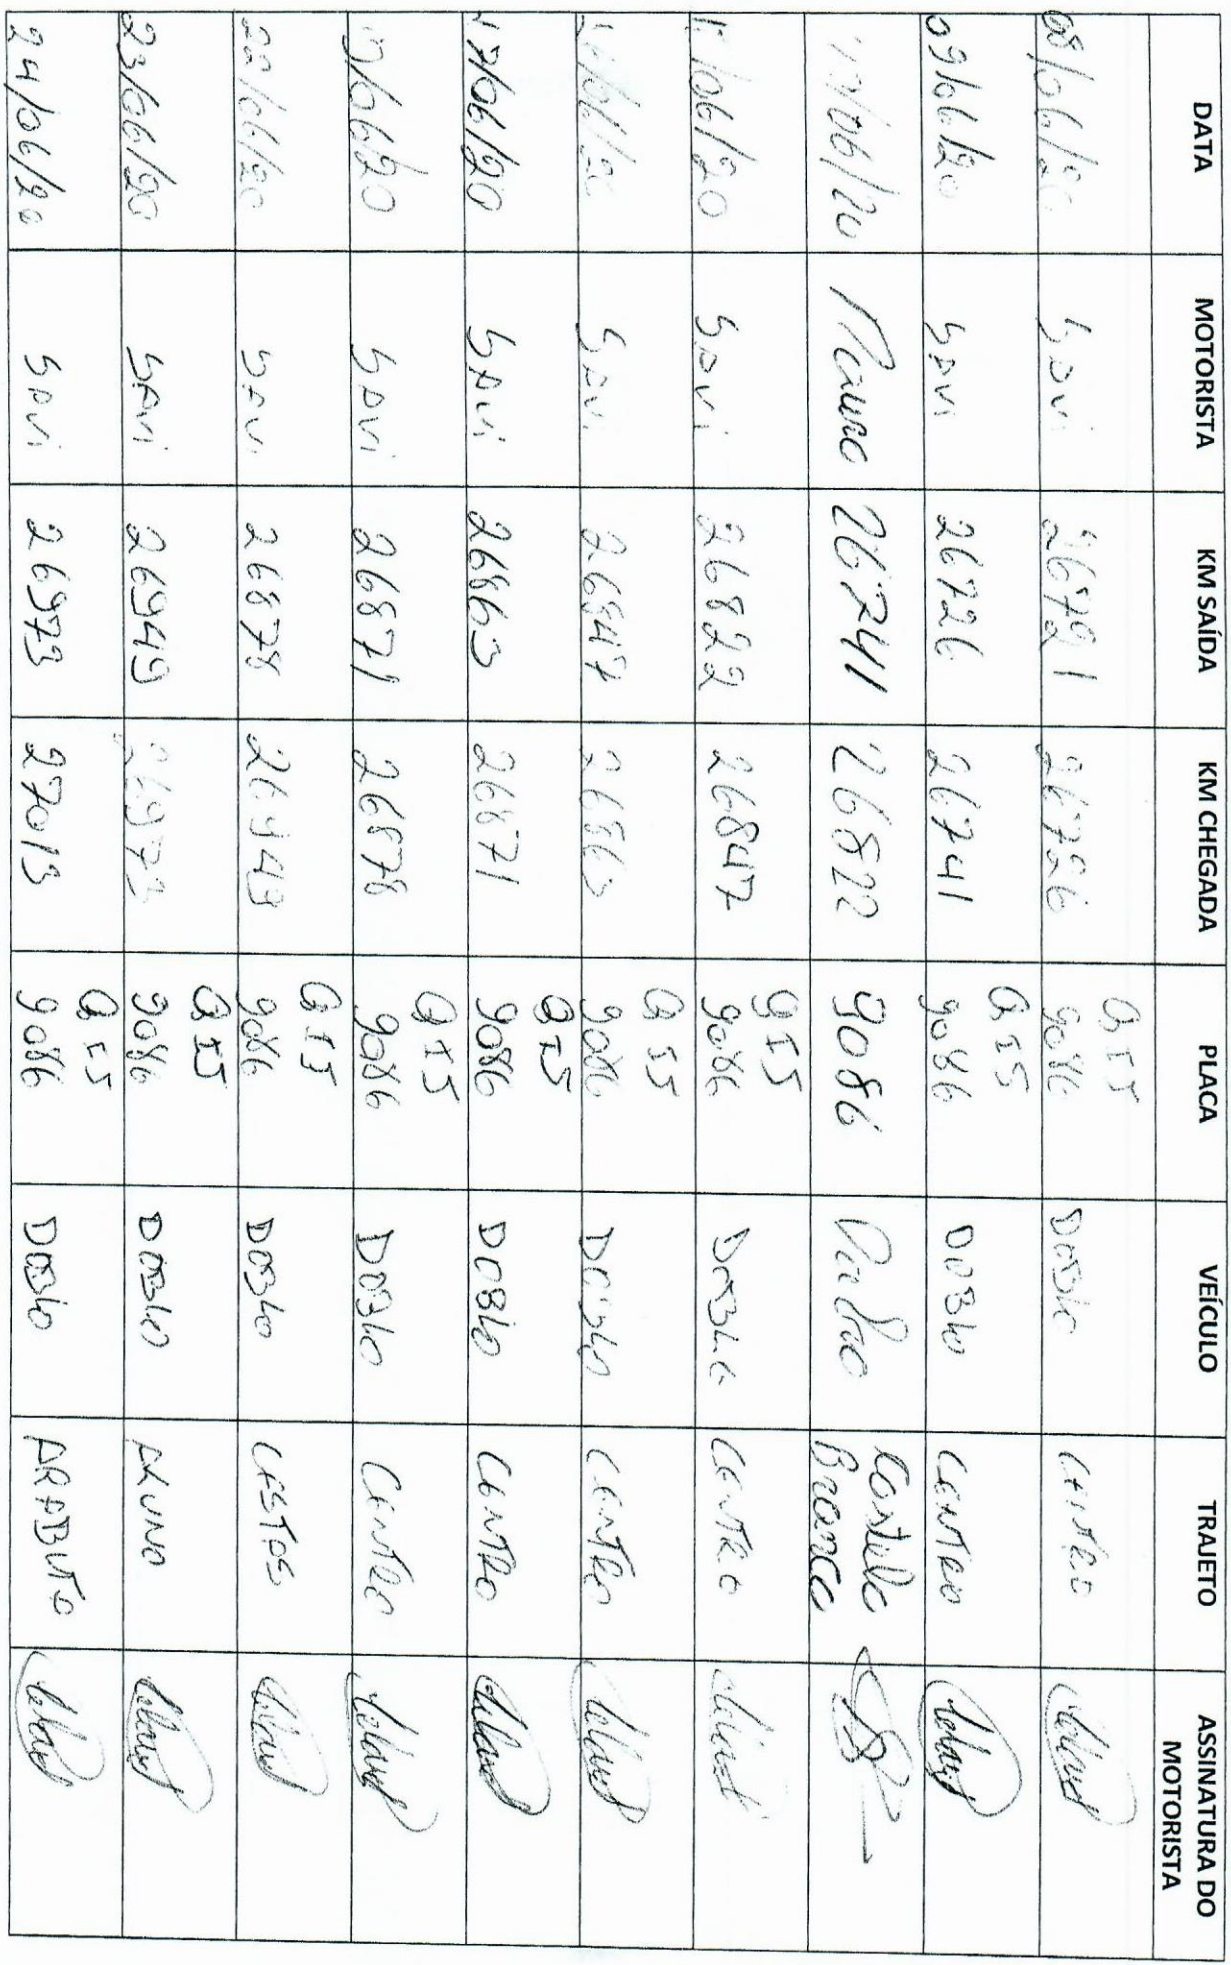 DATA MOTORISTA KM SAÍDA KM CHEGADA PLACA VEÍCULO TRAJETO ASSINATURA DO MOTORISTA
08/06/20 SAVI 26721 26726 QI5 9086 DOBLO CENTRO
09/06/20 SAVI 26726 26741 QI5 9086 DOBLO CENTRO
10/06/20 Mauro 26741 26822 9086 Castelo Branco
/06/20 SAVI 26822 26847 QI5 9086 DOBLO CENTRO
/06/20 SAVI 26847 26863 QI5 9086 DOBLO CENTRO
17/06/20 SAVI 26863 26871 QI5 9086 DOBLO CENTRO
19/06/20 SAVI 26871 26878 QI5 9086 DOBLO CENTRO
22/06/20 SAVI 26878 26949 QI5 9086 DOBLO CESTAS
23/06/20 SAVI 26949 26973 QI5 9086 DOBLO ALUNO
24/06/20 SAVI 26973 27013 QI5 9086 DOBLO ARABUTÃ